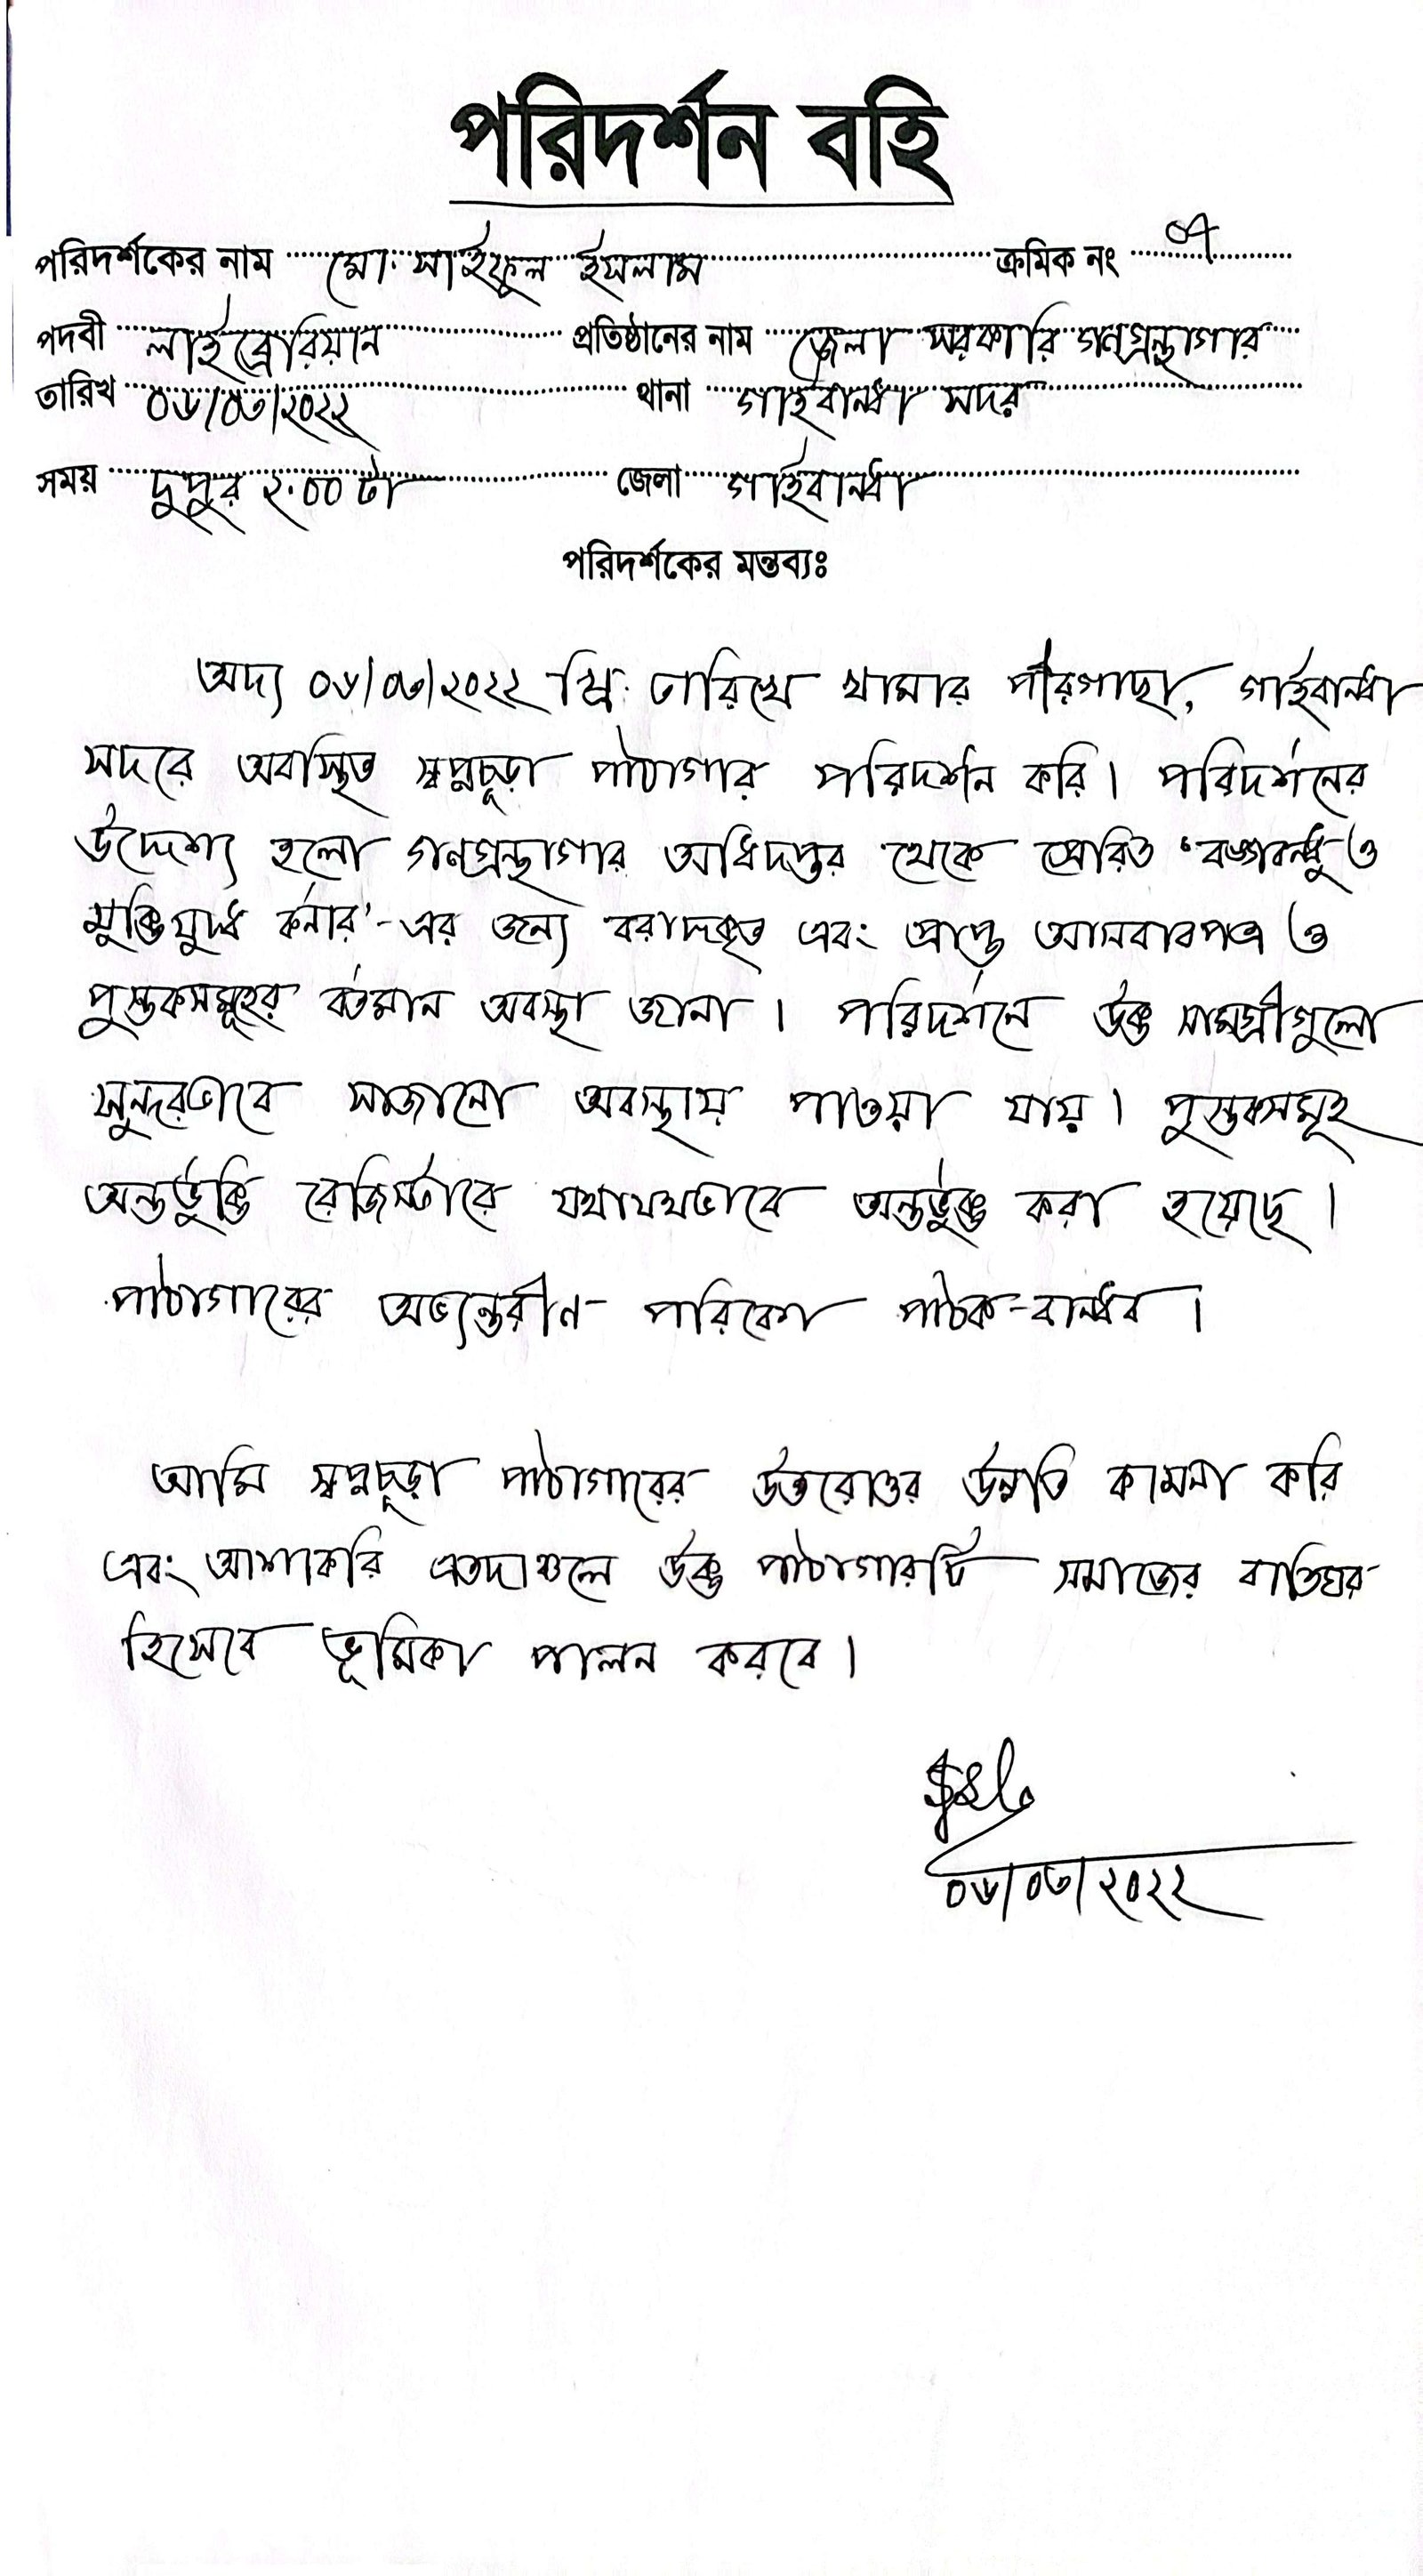 পরিদর্শন বহি
পরিদর্শকের নাম মো. সাইফুল ইসলাম ক্রমিক নং
পদবী লাইব্রেরিয়ান প্রতিষ্ঠানের নাম জেলা সরকারি গণগ্রন্থাগার
তারিখ ০৬/০৩/২০২২ থানা গাইবান্ধা সদর
সময় দুপুর ২.০০ টা জেলা গাইবান্ধা
পরিদর্শকের মন্তব্যঃ
অদ্য ০৬/০৩/২০২২ খ্রি. তারিখে খামার পীরগাছা, গাইবান্ধা
সদরে অবস্থিত স্বপ্নচূড়া পাঠাগার পরিদর্শন করি। পরিদর্শনের
উদ্দেশ্য হলো গণগ্রন্থাগার অধিদপ্তর থেকে প্রেরিত ‘বঙ্গবন্ধু ও
মুক্তিযুদ্ধ কর্নার’-এর জন্যে বরাদ্দকৃত এবং প্রাপ্ত আসবাবপত্র ও
পুস্তকসমূহের বর্তমান অবস্থা জানা। পরিদর্শনে উক্ত সামগ্রীগুলো
সুন্দরভাবে সাজানো অবস্থায় পাওয়া যায়। পুস্তকসমূহ
অন্তর্ভুক্তি রেজিস্টারে যথাযথভাবে অন্তর্ভুক্ত করা হয়েছে।
পাঠাগারের অভ্যন্তরীণ পরিবেশ পাঠক-বান্ধব।
আমি স্বপ্নচূড়া পাঠাগারের উত্তরোত্তর উন্নতি কামনা করি
এবং আশাকরি এতদাঞ্চলে উক্ত পাঠাগারটি সমাজের বাতিঘর
হিসেবে ভূমিকা পালন করবে।
০৬/০৩/২০২২